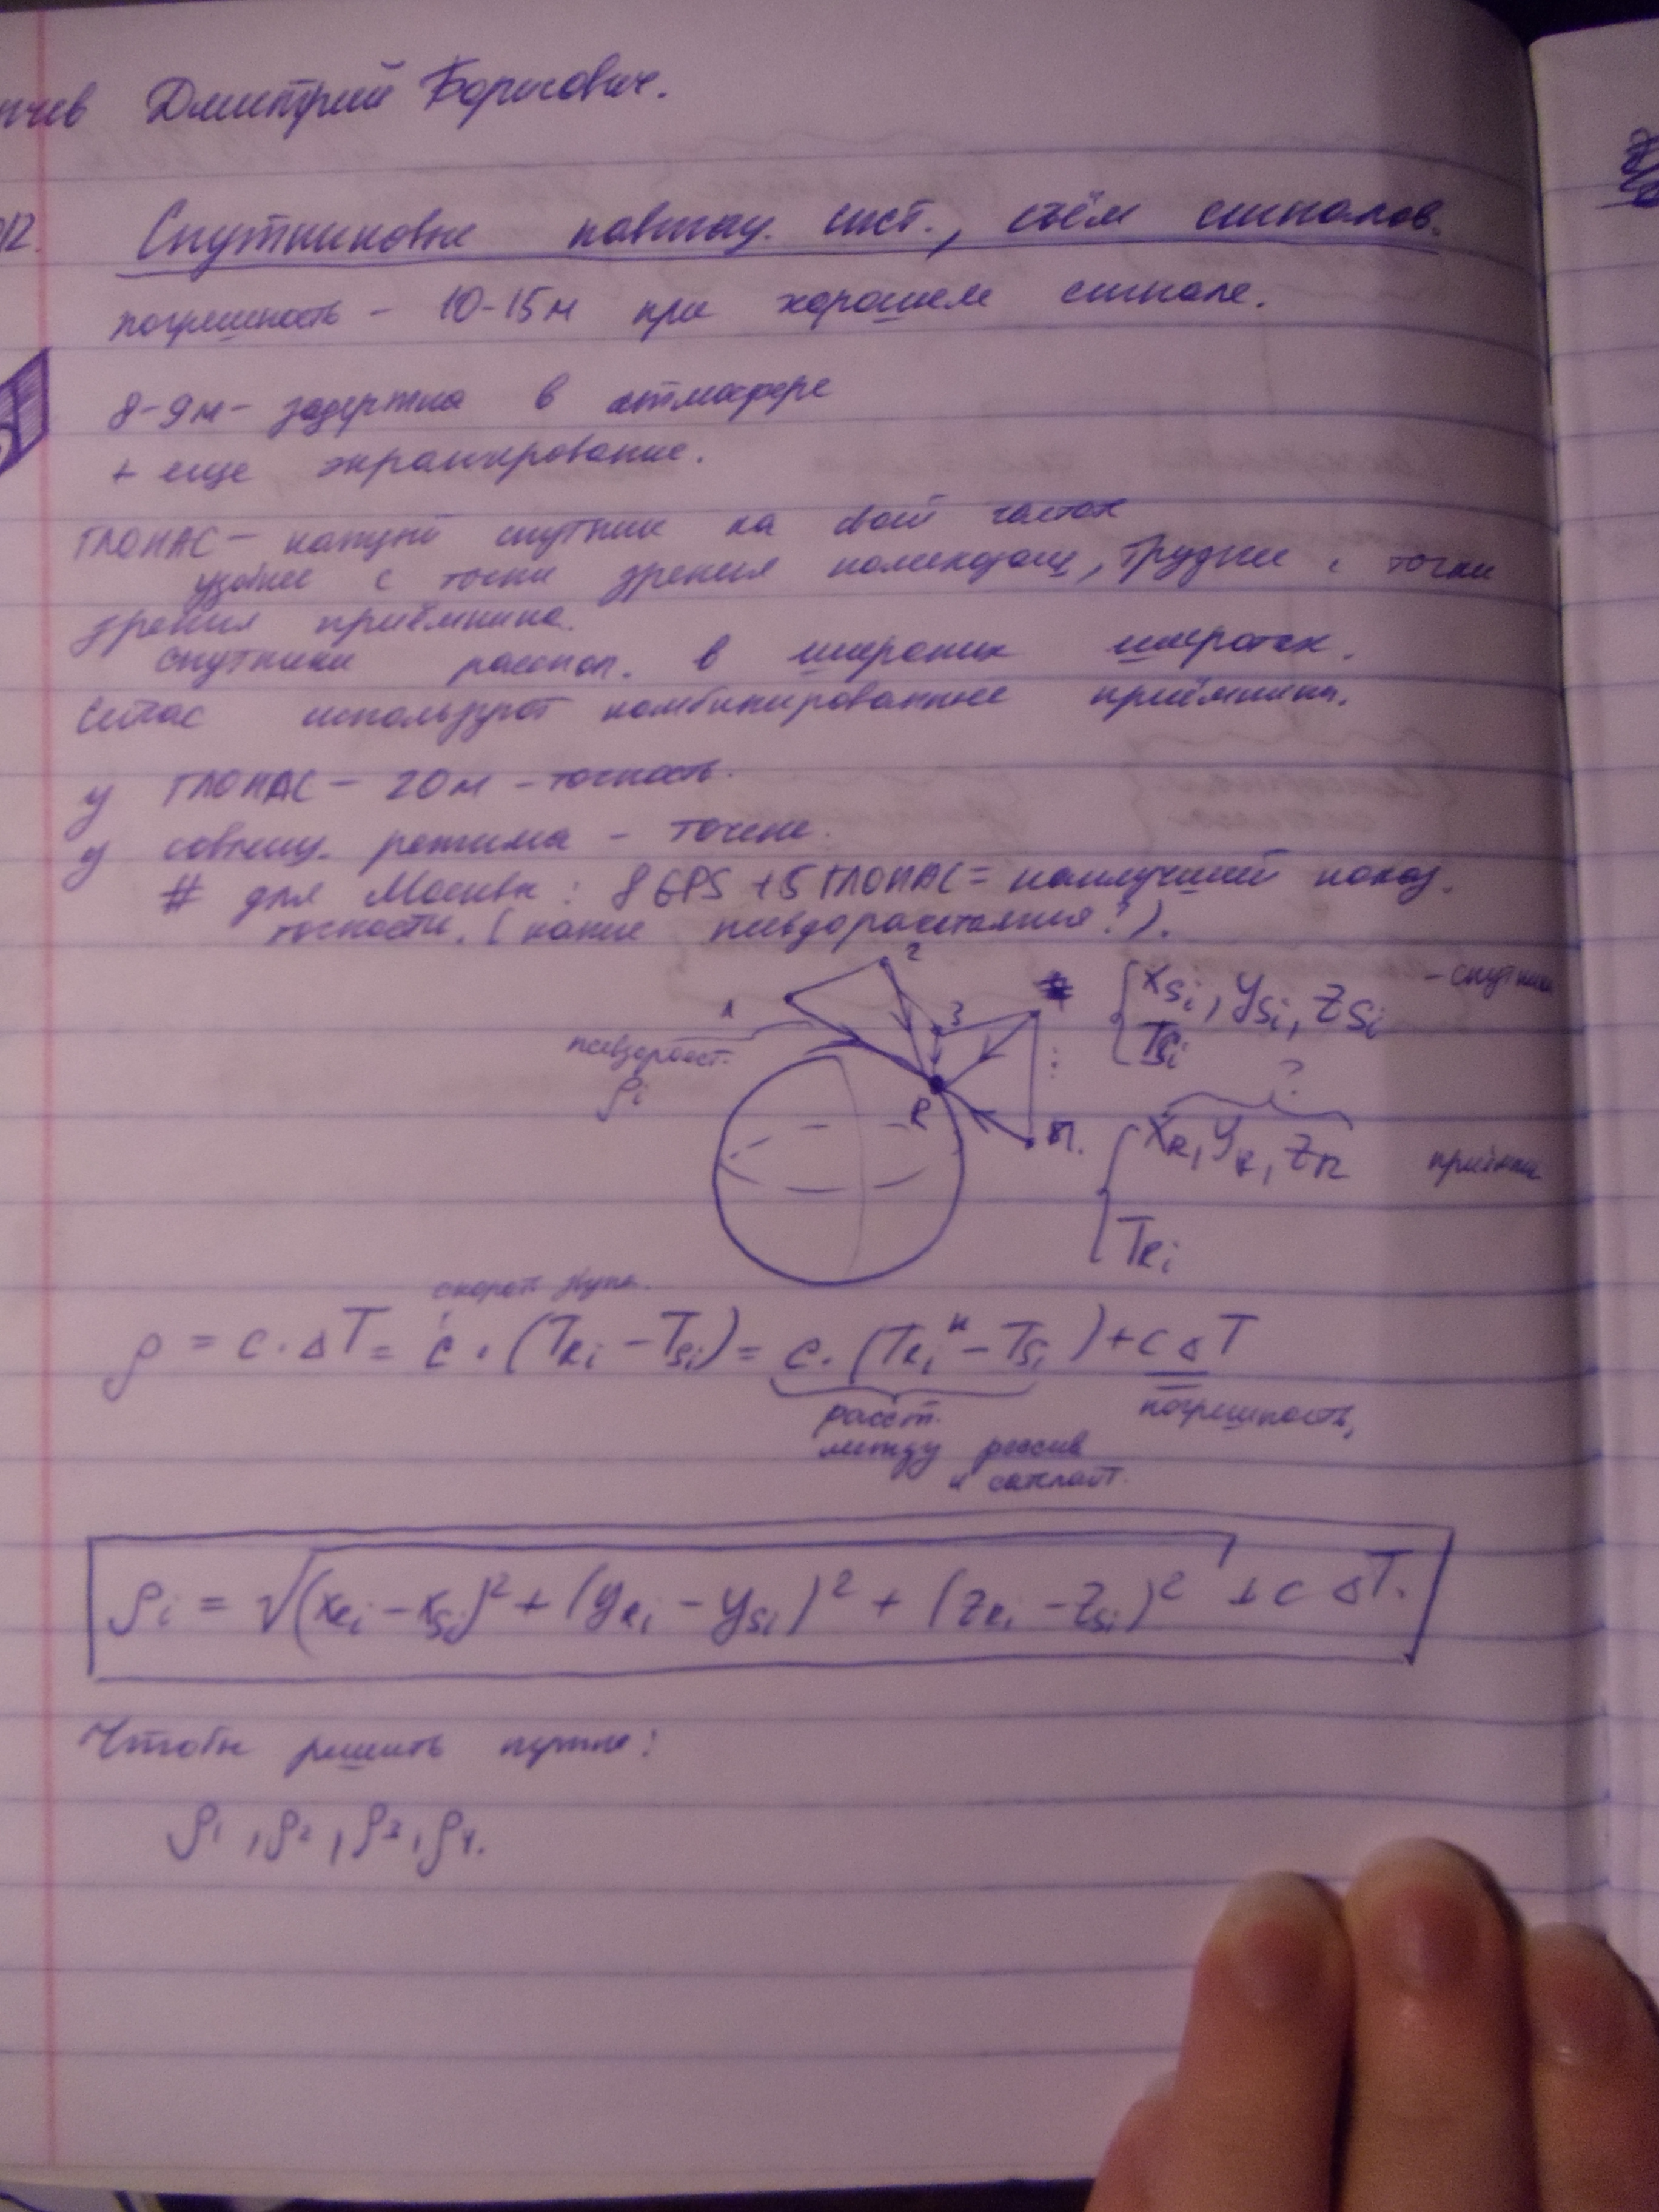 Дмитрий Борисович.
012.
Спутниковые навигац. сист., съём сигналов.
погрешность - 10-15м при хорошем сигнале.
8-9м - задержка в атмосфере
+ еще экранирование.
ГЛОНАС - каждый спутник на своей частоте
удобнее с точки зрения помехозащ, труднее с точки
зрения приёмника.
спутники распол. в широких широтах.
Сейчас используют комбинированные приёмники.
у ГЛОНАС - 20м - точность.
у совмещ. режима - точнее.
# для Москвы: 8 GPS + 5 ГЛОНАС = наилучший показ.
точности. (какие псевдорасстояния?).
1 2 3
псевдораст.
ρi
R
n.
{ xSi, ySi, zSi - спутники
TSi
?
{ xR, yR, zR приёмник
TRi
скорость звука.
ρ = c · ΔT = c · (TRi - TSi) = c · (TRiᴺ - TSi) + c ΔT
расст. погрешность,
между ресив
и сателлит.
ρi = √(xRi - xSi)² + (yRi - ySi)² + (zRi - zSi)² + c ΔT.
Чтобы решить нужно:
ρ1, ρ2, ρ3, ρ4.